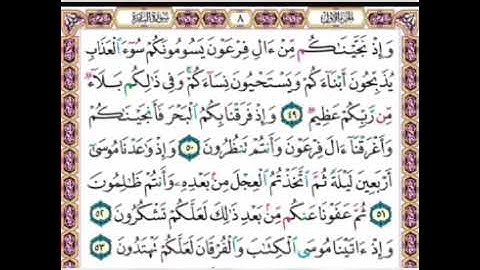 الجزء الأول ٨ سورة البقرة
وَإِذْ نَجَّيْنَـٰكُم مِّنْ ءَالِ فِرْعَوْنَ يَسُومُونَكُمْ سُوٓءَ ٱلْعَذَابِ
يُذَبِّحُونَ أَبْنَآءَكُمْ وَيَسْتَحْيُونَ نِسَآءَكُمْ ۚ وَفِى ذَٰلِكُم بَلَآءٌ
مِّن رَّبِّكُمْ عَظِيمٌ ٤٩ وَإِذْ فَرَقْنَا بِكُمُ ٱلْبَحْرَ فَأَنجَيْنَـٰكُمْ
وَأَغْرَقْنَآ ءَالَ فِرْعَوْنَ وَأَنتُمْ تَنظُرُونَ ٥٠ وَإِذْ وَٰعَدْنَا مُوسَىٰٓ
أَرْبَعِينَ لَيْلَةً ثُمَّ ٱتَّخَذْتُمُ ٱلْعِجْلَ مِنۢ بَعْدِهِۦ وَأَنتُمْ ظَـٰلِمُونَ
٥١ ثُمَّ عَفَوْنَا عَنكُم مِّنۢ بَعْدِ ذَٰلِكَ لَعَلَّكُمْ تَشْكُرُونَ ٥٢
وَإِذْ ءَاتَيْنَا مُوسَى ٱلْكِتَـٰبَ وَٱلْفُرْقَانَ لَعَلَّكُمْ تَهْتَدُونَ ٥٣